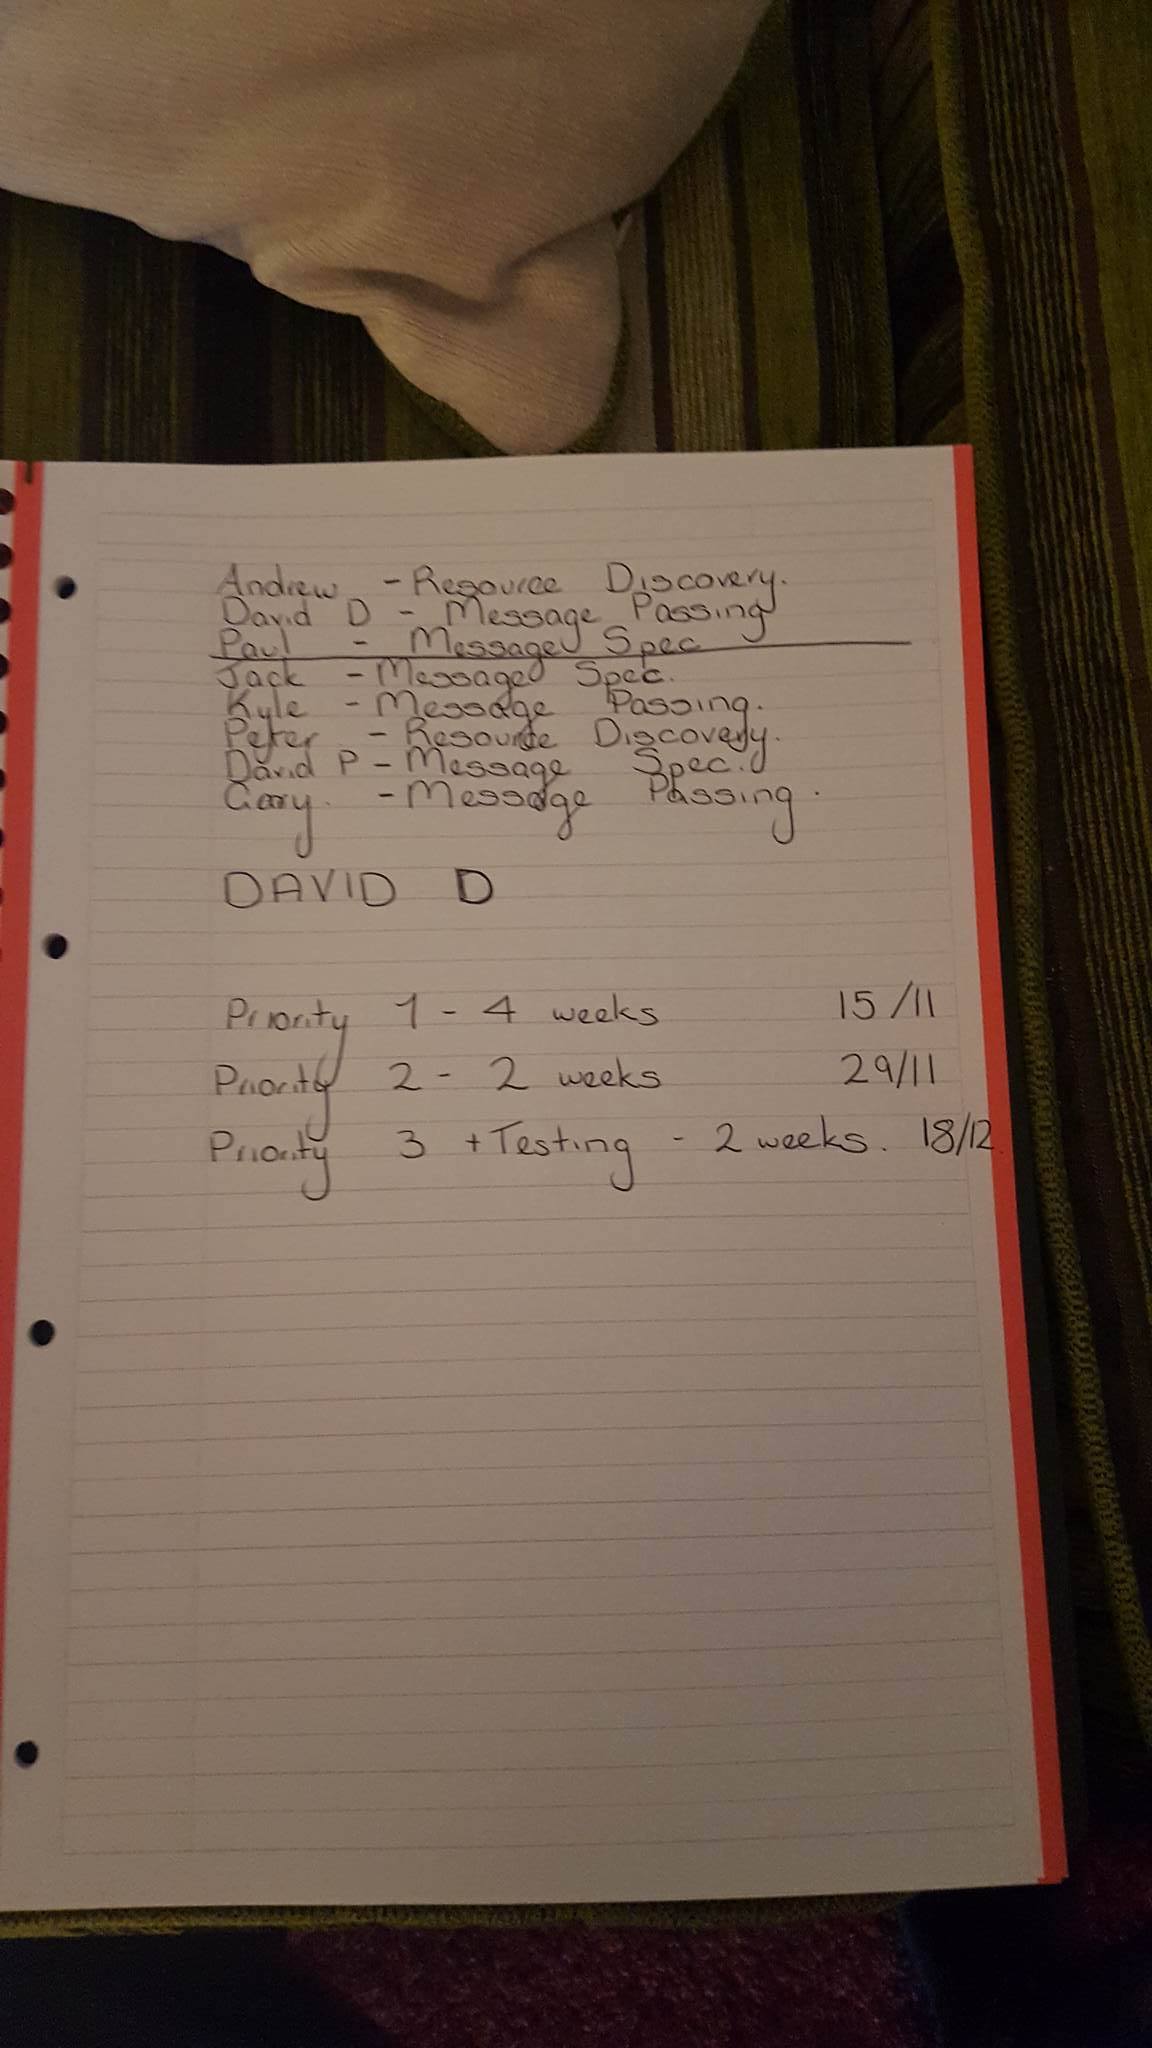 Andrew - Resource Discovery.
David D - Message Passing
Paul - Message Spec
Jack - Message Spec.
Kyle - Message Passing.
Peter - Resource Discovery.
David P - Message Spec.
Gary. - Message Passing.
DAVID D
Priority 1 - 4 weeks 15/11
Priority 2 - 2 weeks 29/11
Priority 3 + Testing - 2 weeks. 18/12.